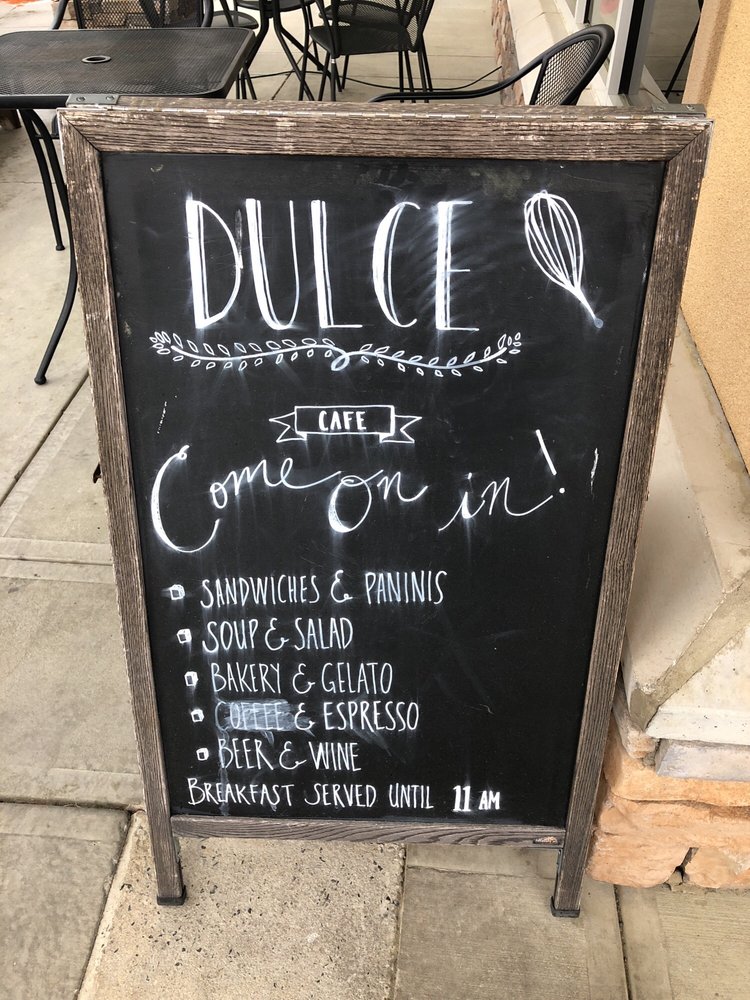 DULCE
CAFE
Come on in!
SANDWICHES & PANINIS
SOUP & SALAD
BAKERY & GELATO
COFFEE & ESPRESSO
BEER & WINE
BREAKFAST SERVED UNTIL 11 AM